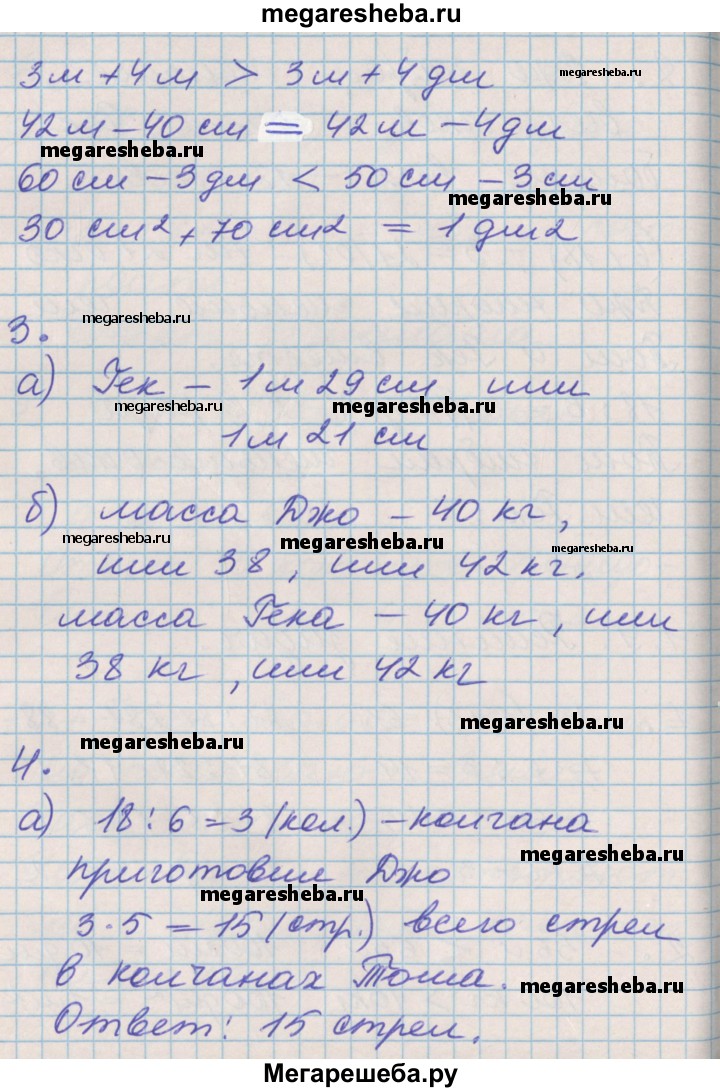 megaresheba.ru
3м + 4м > 3м + 4дм
megaresheba.ru
42м – 40 см = 42м – 4дм
megaresheba.ru
60 см – 3дм < 50 см – 3см
megaresheba.ru
30 см2 + 70 см2 = 1 дм2
megaresheba.ru
3.
а) Гек – 1м 29 см или
megaresheba.ru
megaresheba.ru
1м 21 см
б) масса Джо – 40 кг,
megaresheba.ru
megaresheba.ru
megaresheba.ru
или 38, или 42 кг.
масса Гека – 40 кг, или
38 кг, или 42 кг
megaresheba.ru
megaresheba.ru
4.
а) 18 : 6 = 3 (кол.) – колчана
megaresheba.ru
приготовил Джо
megaresheba.ru
3 · 5 = 15 (стр.) всего стрел
в колчанах Тоша.
megaresheba.ru
Ответ: 15 стрел.
Мегарешеба.ру